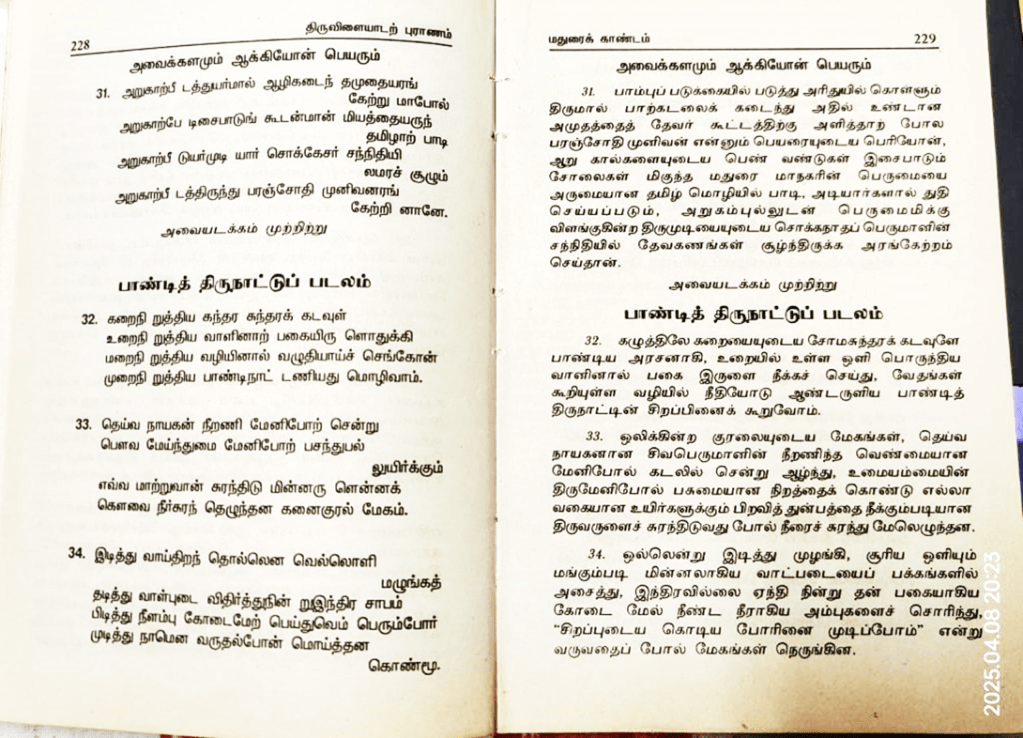 228
திருவிளையாடற் புராணம்
அவைக்களமும் ஆக்கியோன் பெயரும்
31. அறுகாற்பீ டத்துயர்மால் ஆழிகடைந் தமுதையரங்
கேற்று மாபோல்
அறுகாற்பே டிசைபாடுங் கூடன்மான் மியத்தையருந்
தமிழாற் பாடி
அறுகாற்பீ டுயர்முடி யார் சொக்கேசர் சந்நிதியி
லமரச் சூழும்
அறுகாற்பீ டத்திருந்து பரஞ்சோதி முனிவனரங்
கேற்றி னானே.
அவையடக்கம் முற்றிற்று
பாண்டித் திருநாட்டுப் படலம்
32. கறைநி றுத்திய கந்தர சுந்தரக் கடவுள்
உறைநி றுத்திய வாளினாற் பகையிரு ளொதுக்கி
மறைநி றுத்திய வழியினால் வழுதியாய்ச் செங்கோன்
முறைநி றுத்திய பாண்டிநாட் டணியது மொழிவாம்.
33. தெய்வ நாயகன் நீறணி மேனிபோற் சென்று
பௌவ மேய்ந்துமை மேனிபோற் பசந்துபல்
லுயிர்க்கும்
எவ்வ மாற்றுவான் சுரந்திடு மின்னரு ளென்னக்
கௌவை நீர்சுரந் தெழுந்தன கனைகுரல் மேகம்.
34. இடித்து வாய்திறந் தொல்லென வெல்லொளி
மழுங்கத்
தடித்து வாள்புடை விதிர்த்துநின் றுஇந்திர சாபம்
பிடித்து நீளம்பு கோடைமேற் பெய்துவெம் பெரும்போர்
முடித்து நாமென வருதல்போன் மொய்த்தன
கொண்மூ.
மதுரைக் காண்டம்
229
அவைக்களமும் ஆக்கியோன் பெயரும்
31. பாம்புப் படுக்கையில் படுத்து அரிதுயில் கொள்ளும்
திருமால் பாற்கடலைக் கடைந்து அதில் உண்டான
அமுதத்தைத் தேவர் கூட்டத்திற்கு அளித்தாற் போல
பரஞ்சோதி முனிவன் என்னும் பெயரையுடைய பெரியோன்,
ஆறு கால்களையுடைய பெண் வண்டுகள் இசைபாடும்
சோலைகள் மிகுந்த மதுரை மாநகரின் பெருமையை
அருமையான தமிழ் மொழியில் பாடி, அடியார்களால் துதி
செய்யப்படும், அறுகம்புல்லுடன் பெருமைமிக்கு
விளங்குகின்ற திருமுடியையுடைய சொக்கநாதப் பெருமாளின்
சந்நிதியில் தேவகணங்கள் சூழ்ந்திருக்க அரங்கேற்றம்
செய்தான்.
அவையடக்கம் முற்றிற்று
பாண்டித் திருநாட்டுப் படலம்
32. கழுத்திலே கறையையுடைய சோமசுந்தரக் கடவுளே
பாண்டிய அரசனாகி, உறையில் உள்ள ஒளி பொருந்திய
வாளினால் பகை இருளை நீக்கச் செய்து, வேதங்கள்
கூறியுள்ள வழியில் நீதியோடு ஆண்டருளிய பாண்டித்
திருநாட்டின் சிறப்பினைக் கூறுவோம்.
33. ஒலிக்கின்ற குரலையுடைய மேகங்கள், தெய்வ
நாயகனான சிவபெருமாளின் நீறணிந்த வெண்மையான
மேனிபோல் கடலில் சென்று ஆழ்ந்து, உமையம்மையின்
திருமேனிபோல் பசுமையான நிறத்தைக் கொண்டு எல்லா
வகையான உயிர்களுக்கும் பிறவித் துன்பத்தை நீக்கும்படியான
திருவருளைச் சுரந்திடுவது போல் நீரைச் சுரந்து மேலெழுந்தன.
34. ஒல்லென்று இடித்து முழங்கி, சூரிய ஒளியும்
மங்கும்படி மின்னலாகிய வாட்படையைப் பக்கங்களில்
அசைத்து, இந்திரவில்லை ஏந்தி நின்று தன் பகையாகிய
கோடை மேல் நீண்ட நீராகிய அம்புகளைச் சொரிந்து,
"சிறப்புடைய கொடிய போரினை முடிப்போம்" என்று
வருவதைப் போல் மேகங்கள் நெருங்கின.
2025.04.08 20:23